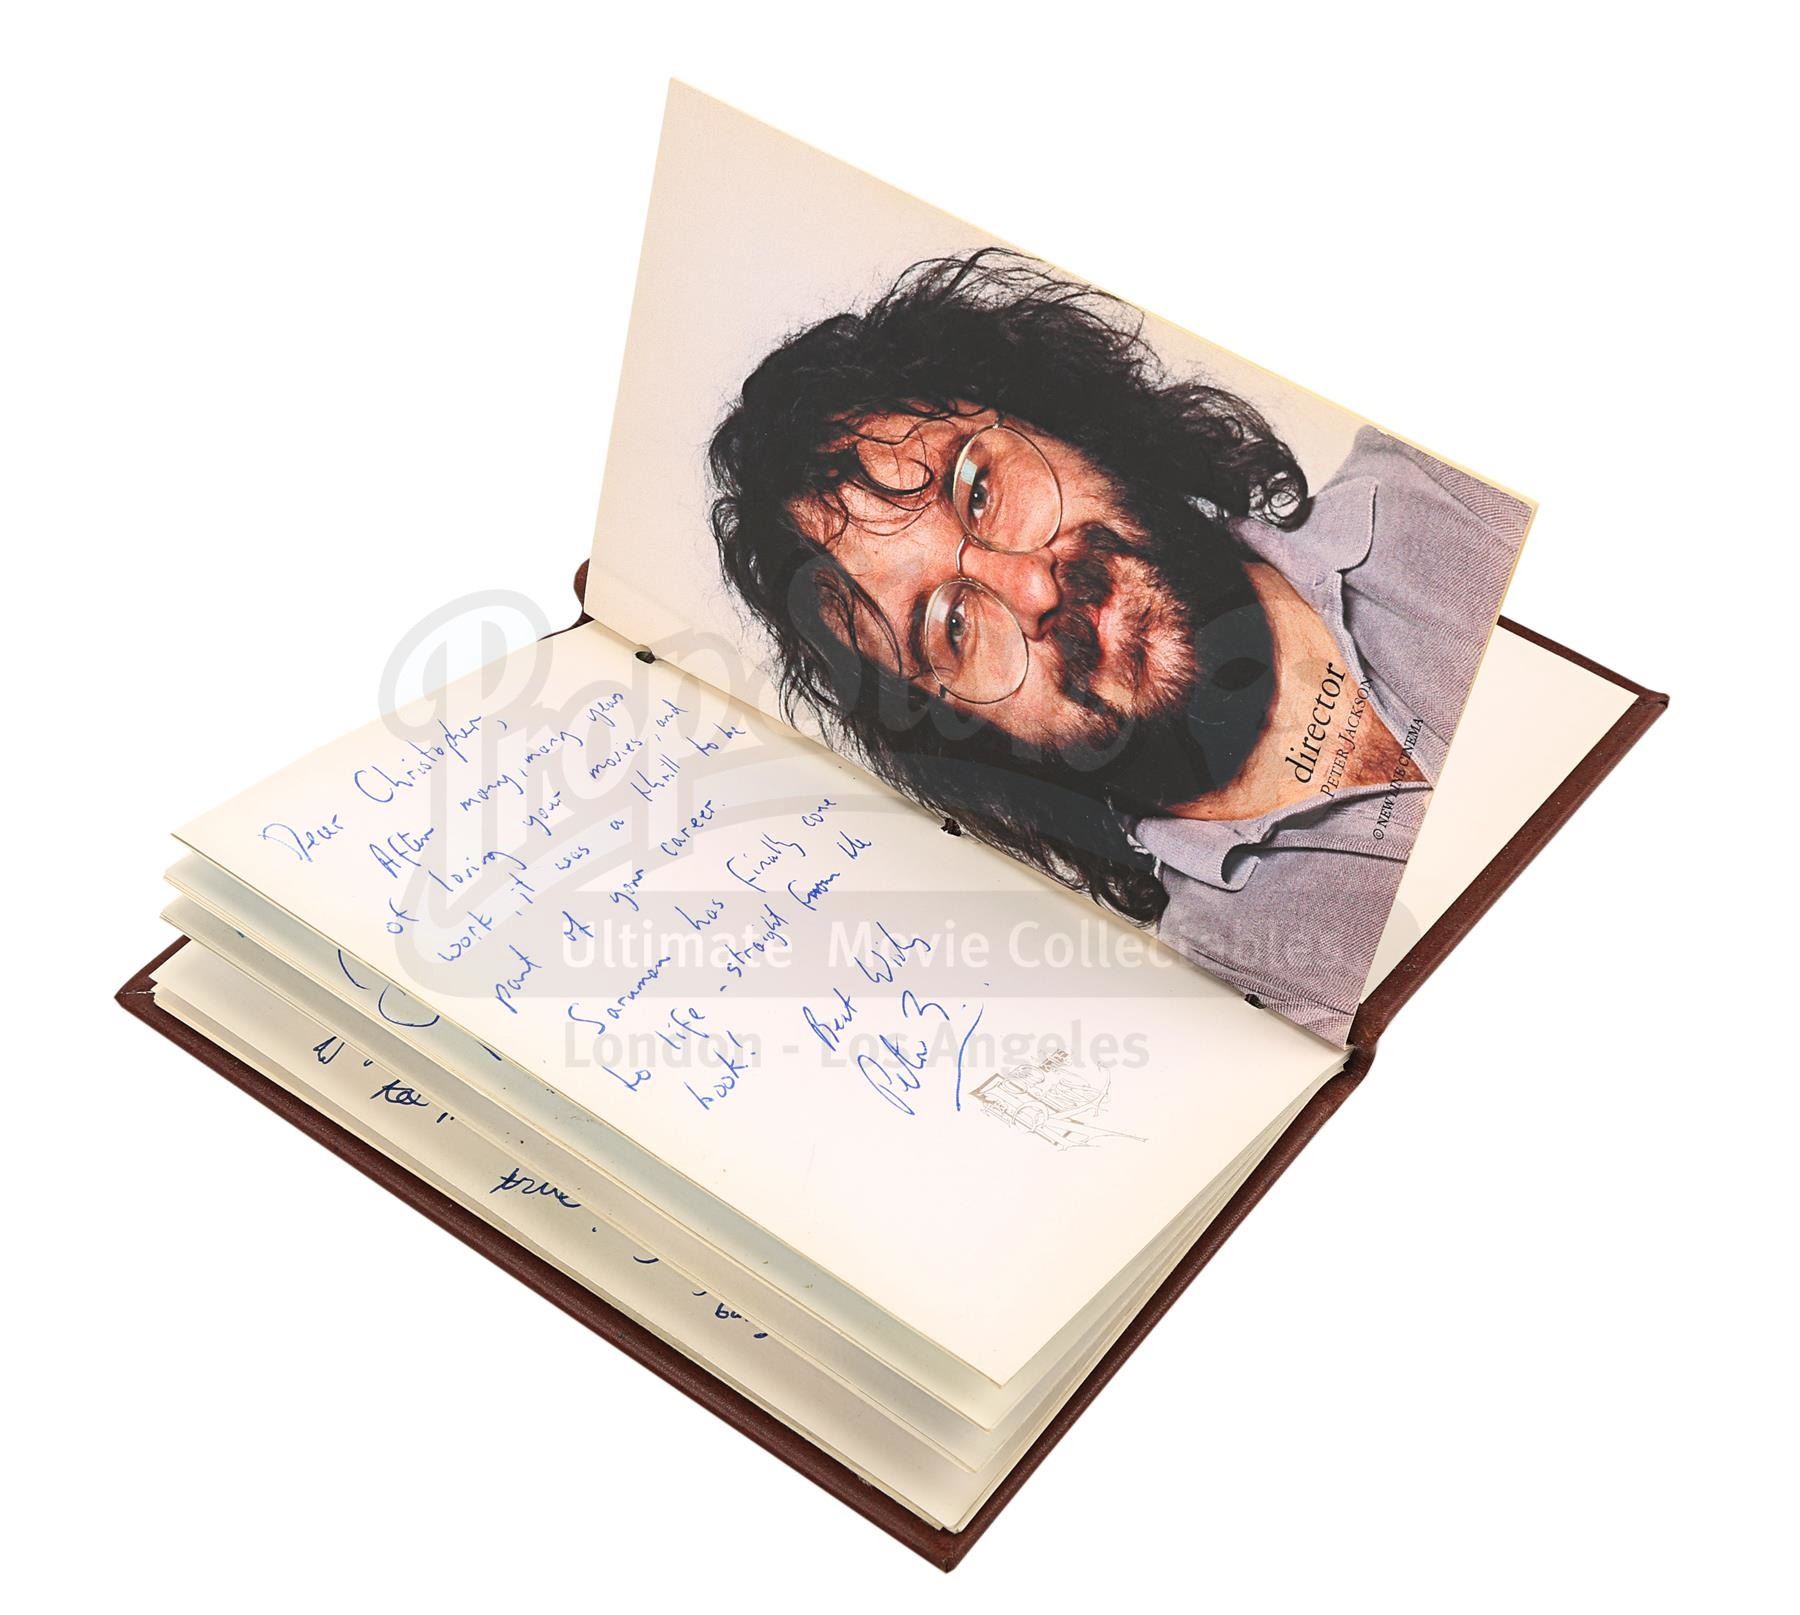 director
PETER JACKSON
© NEW LINE CINEMA
Dear Christopher,
After many, many years
of loving your movies, and
work, it was a thrill to be
part of your career.
Saruman has finally come
to life - straight from the
book!
Best Wishes
Peter J
PropStore
Ultimate Movie Collectables
London - Los Angeles